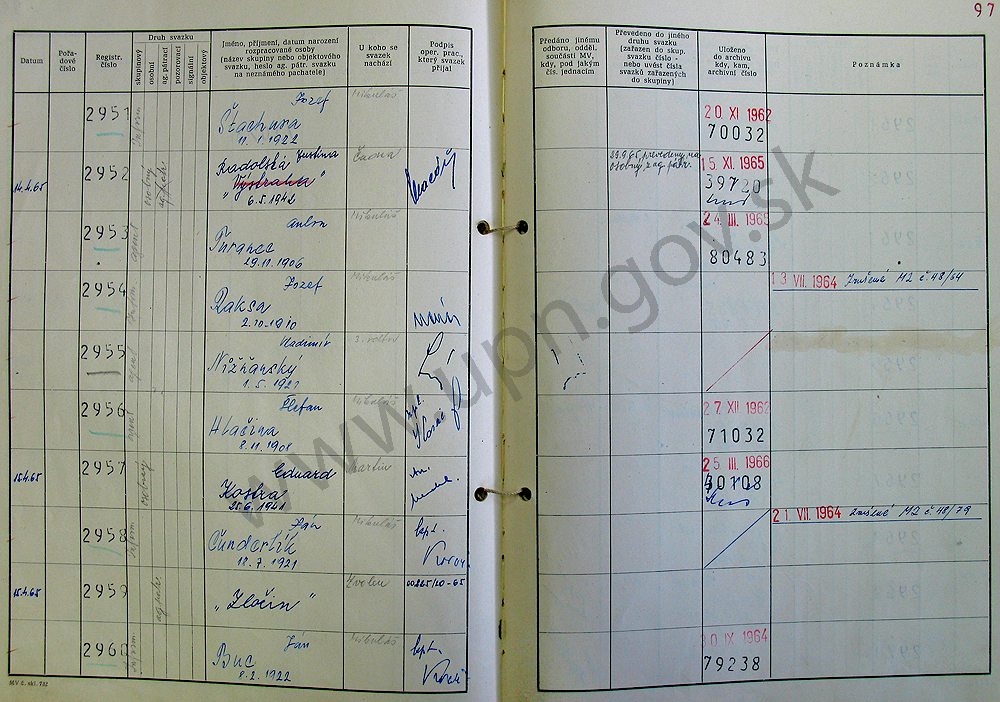 97
Datum
Pořadové číslo
Registr. číslo
Druh svazku
skupinový
osobní
ag. pátrací
pozorovací
signální
objektový
Jméno, příjmení, datum narození
rozpracované osoby
(název skupiny nebo objektového
svazku, heslo ag. pátr. svazku
na neznámého pachatele)
U koho se
svazek
nachází
Podpis
oper. prac.,
který svazek
přijal
Předáno jinému
odboru, odděl.
součásti MV,
kdy, pod jakým
čís. jednacím
Převedeno do jiného
druhu svazku
(zařazen do skup.
svazku číslo -
nebo uvést čísla
svazků zařazených
do skupiny)
Uloženo
do archivu
kdy, kam,
archivní číslo
Poznámka
2951 inform Jozef Mikuláš
Štachura
11. 1. 1922
20. XI 1962
70032
14.4.65 2952 osobný ag. patr. Radolská Justina Čadca
"Výstraha"
6.5.1942
15 XI. 1965
39720
2953 agent Anton Mikuláš
Turanec
29.11.1906
24. III. 1965
80483
2954 inform Jozef Mikuláš
Raksa
2.10.1910
13 VII. 1964 Zničené M2 č. 48/54
2955 agent Vladimír
Nižňanský
1. 5. 1921
2956 agent Štefan Mikuláš
Hlašiva
8.11.1908
27. XII 1962
71032
15.4.65 2957 osobny Eduard Martin
Kostra
25.6.1941
25 III. 1966
40108
2958 inform Ján Mikuláš
Čunderlík
18. 7. 1921
kpt.
21. VII. 1964 Zničené M2 č. 48/79
15.4.65 2959 ag patr. "Zločin" Zvolen
2960 inform Ján Mikuláš
Buc
8. 2. 1922
kpt.
30 IX 1964
79238
MV č. skl. 782
www.upn.gov.sk